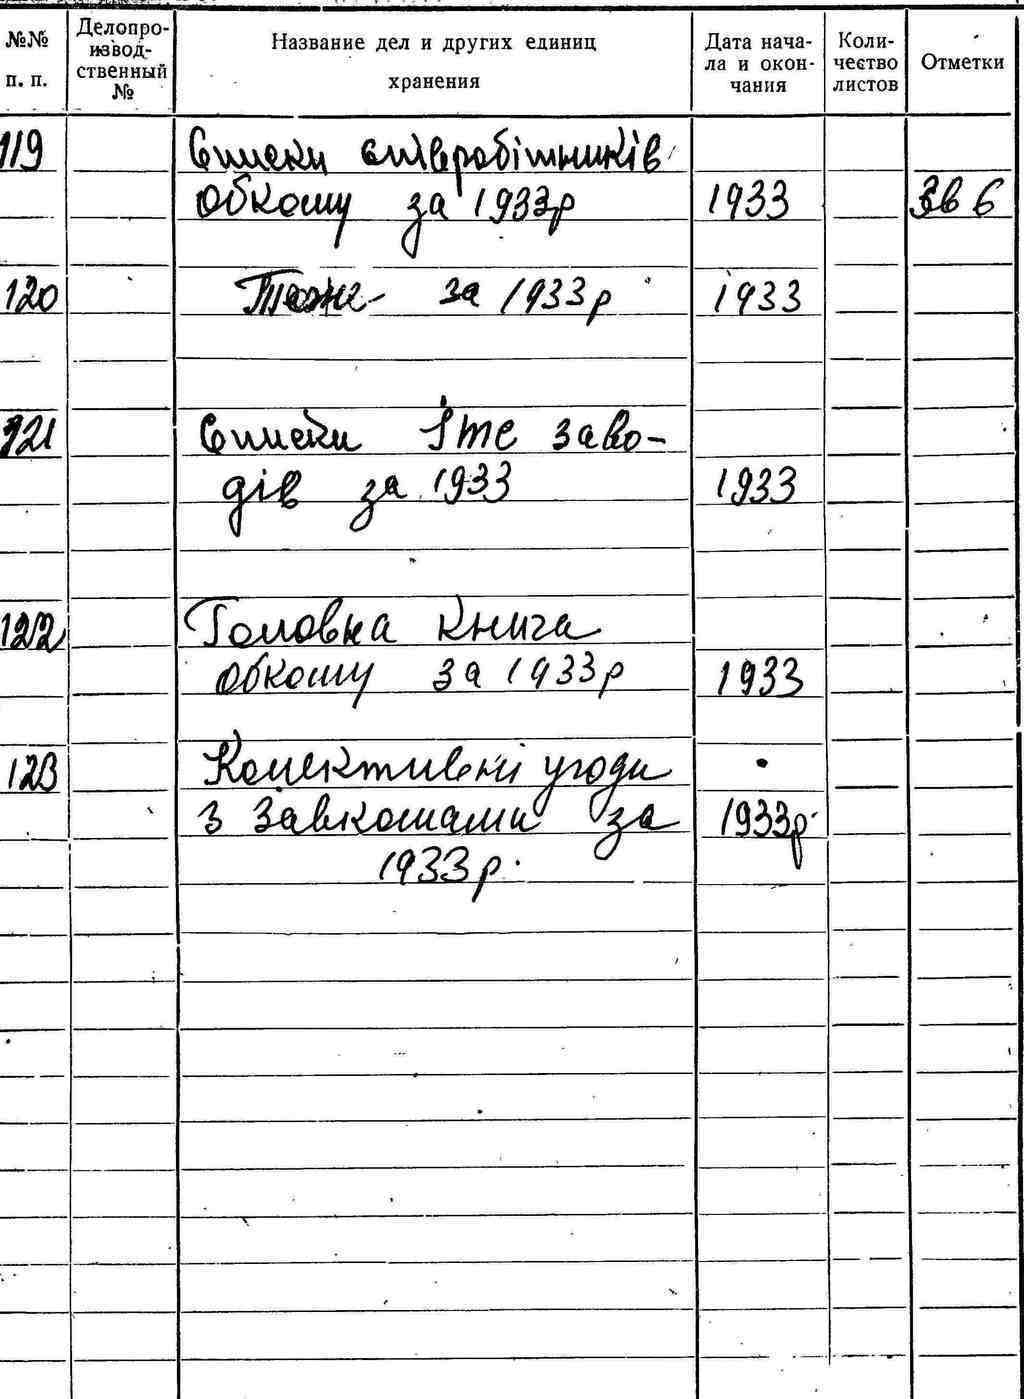 №№ п. п. Делопроизводственный № Название дел и других единиц хранения Дата начала и окончания Количество листов Отметки
119 Списки співробітників
Обкому за 1933р 1933 Зв 6
120 Тоже за 1933р 1933
121 Списки ІТС заво-
дів за 1933 1933
122 Головна книга
Обкому за 1933р 1933
123 Колективні угоди
з Завкомами за 1933р.
1933р.